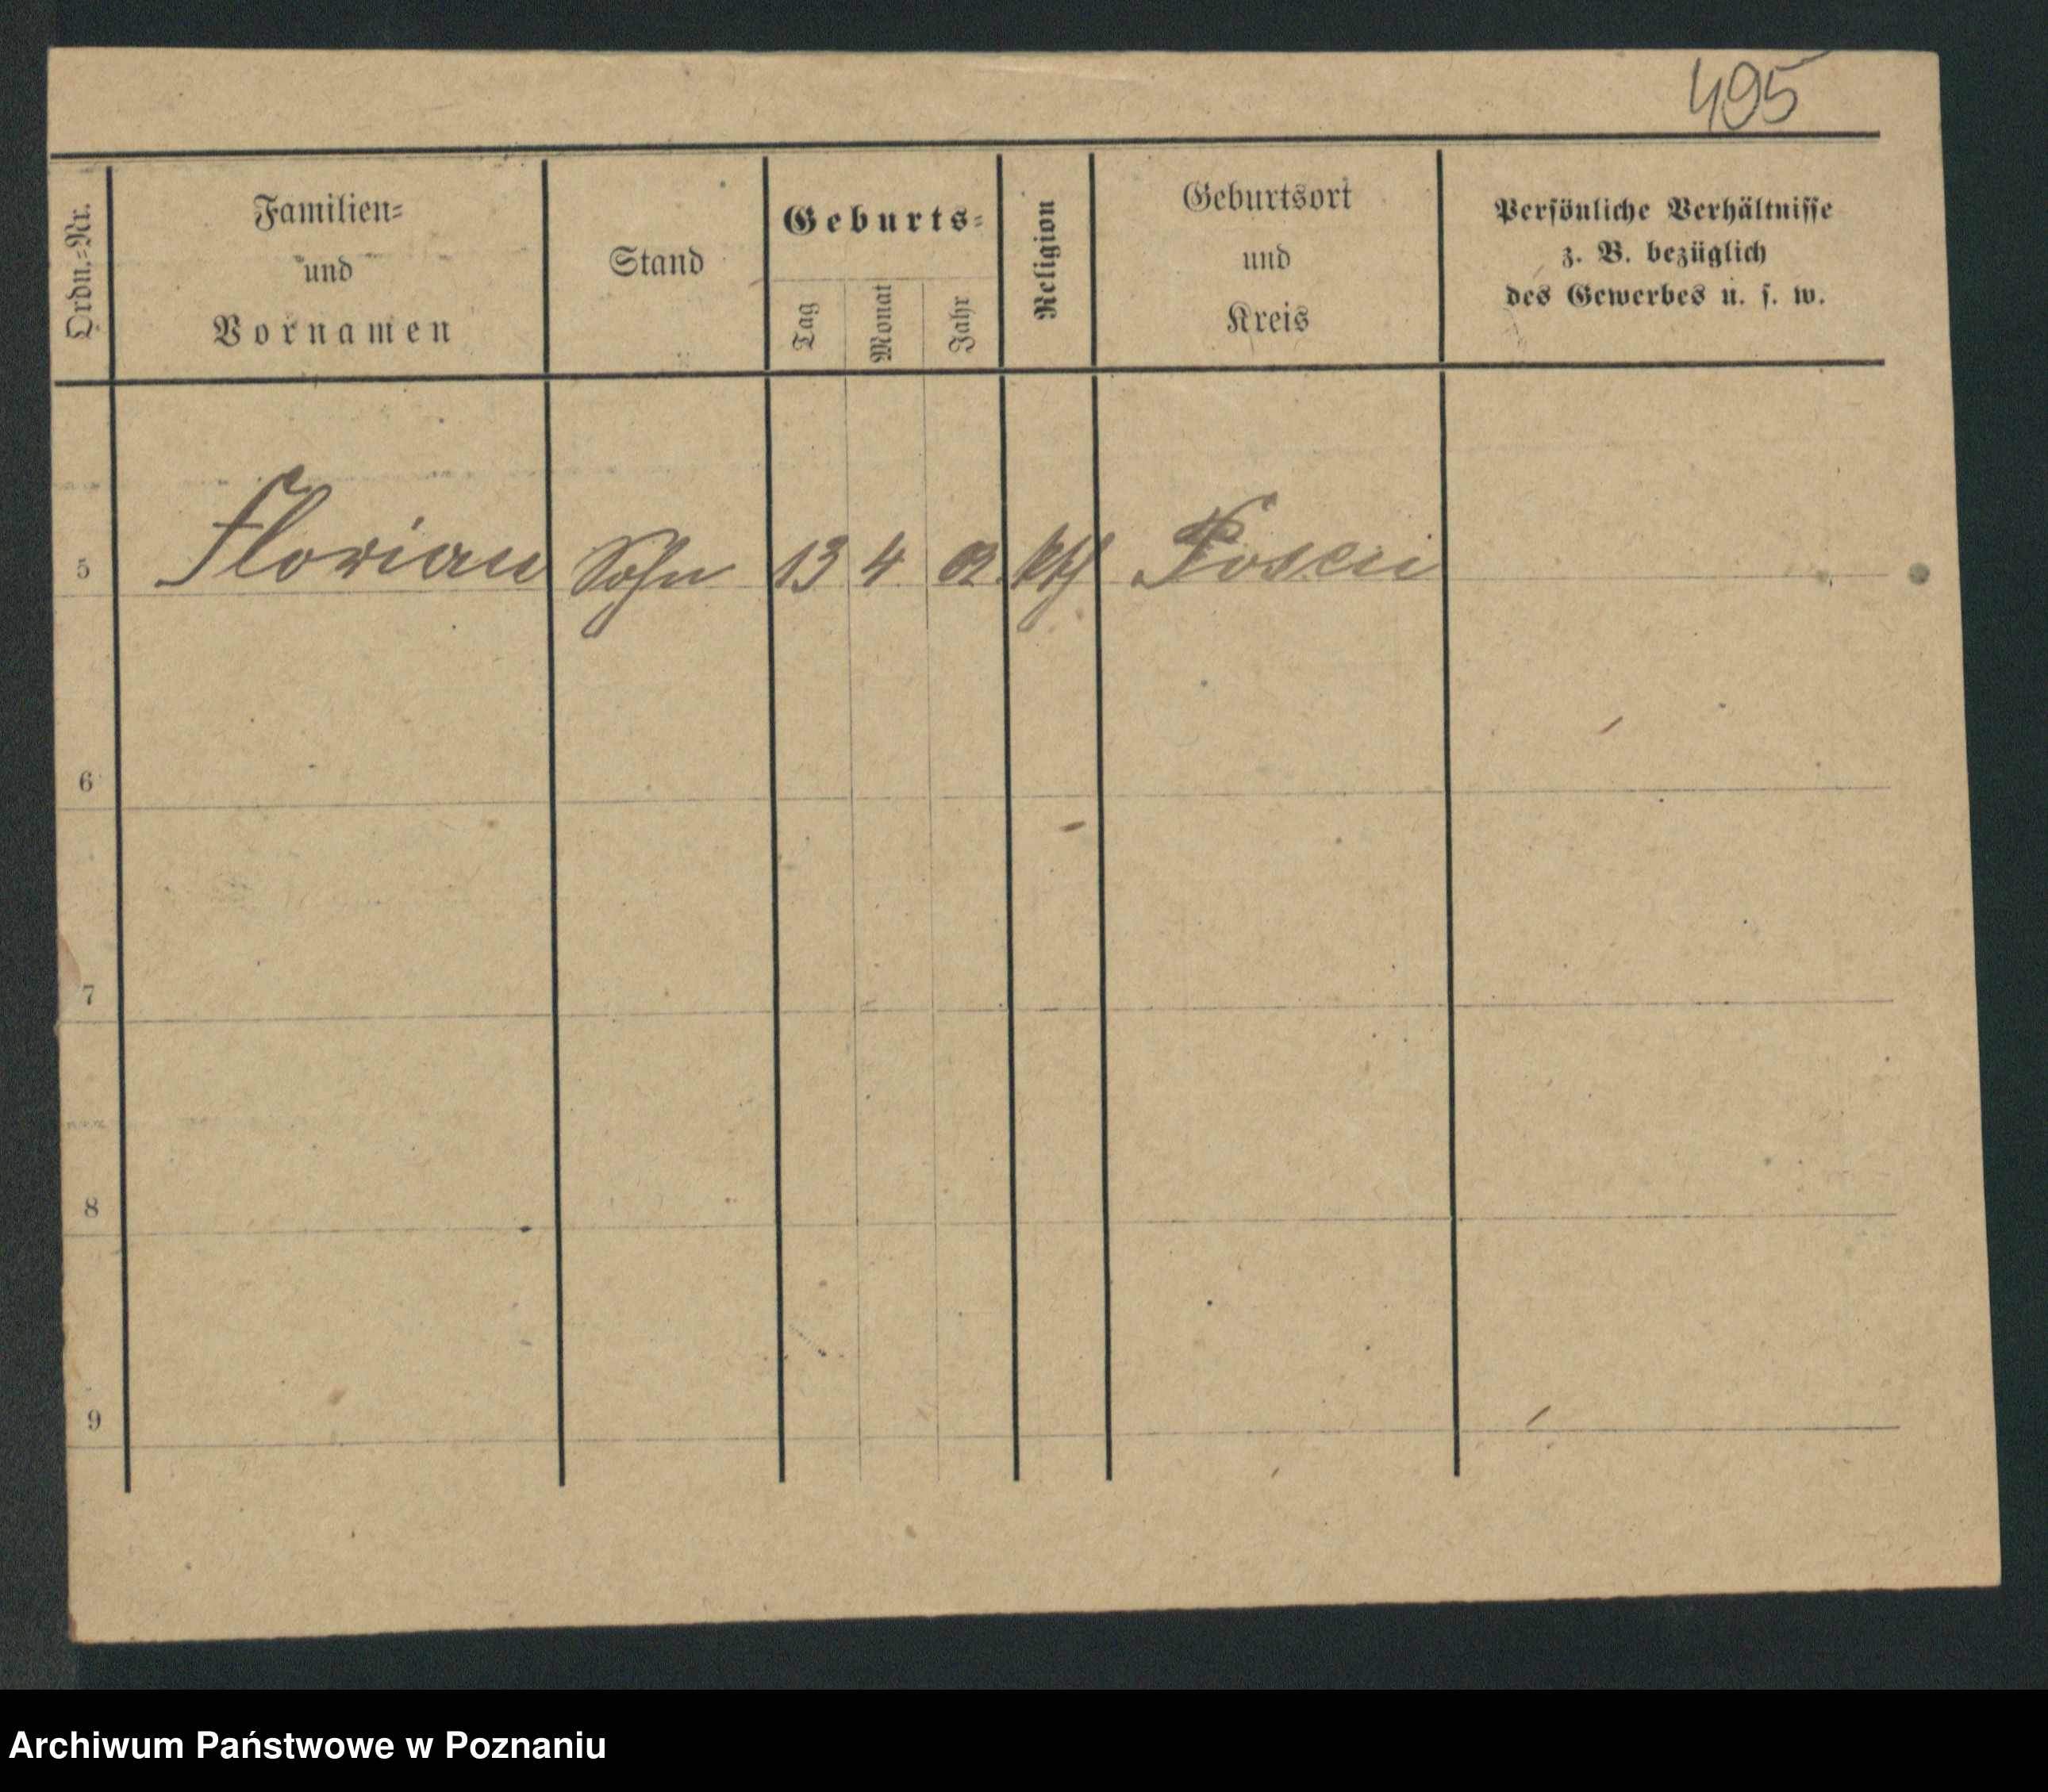 495
Ordn.-Nr.
Familien-
und
Vornamen
Stand
Geburts-
Tag
Monat
Jahr
Religion
Geburtsort
und
Kreis
Persönliche Verhältnisse
z. B. bezüglich
des Gewerbes u. s. w.
5 Florian Sohn 13 4 02 kth Posen
6
7
8
9
Archiwum Państwowe w Poznaniu